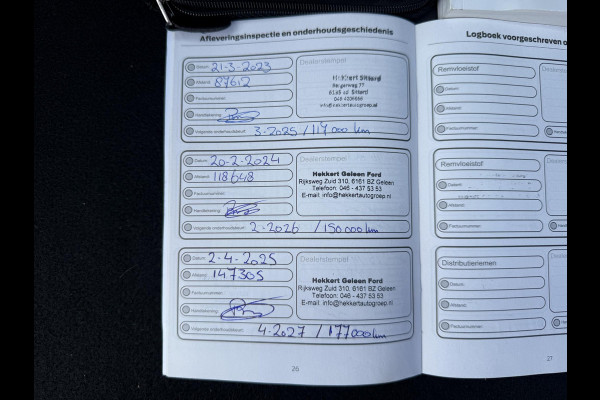 Afleveringsinspectie en onderhoudsgeschiedenis
Datum: 21-3-2023
Afstand: 87612
Factuurnummer:
Handtekening:
Volgende onderhoudsbeurt: 3-2025 / 117000 km
Dealerstempel
Hekkert Sittard
info@hekkertautogroep.nl
Datum: 20-2-2024
Afstand: 118648
Factuurnummer:
Handtekening:
Volgende onderhoudsbeurt: 2-2026 / 150000 km
Hekkert Geleen Ford
Rijksweg Zuid 310, 6161 BZ Geleen
Telefoon: 046 - 437 53 53
E-mail: info@hekkertautogroep.nl
Datum: 2-4-2025
Afstand: 147305
Factuurnummer:
Handtekening:
Volgende onderhoudsbeurt: 4-2027 / 177000 km
Dealerstempel
Hekkert Geleen Ford
Rijksweg Zuid 310, 6161 BZ Geleen
Telefoon: 046 - 437 53 53
E-mail: info@hekkertautogroep.nl
26
Logboek voorgeschreven o
Remvloeistof
Datum:
Afstand:
Factuurnummer:
Remvloeistof
Datum:
Afstand:
Factuurnummer:
Distributieriemen
Datum:
Afstand:
Factuurnummer:
27